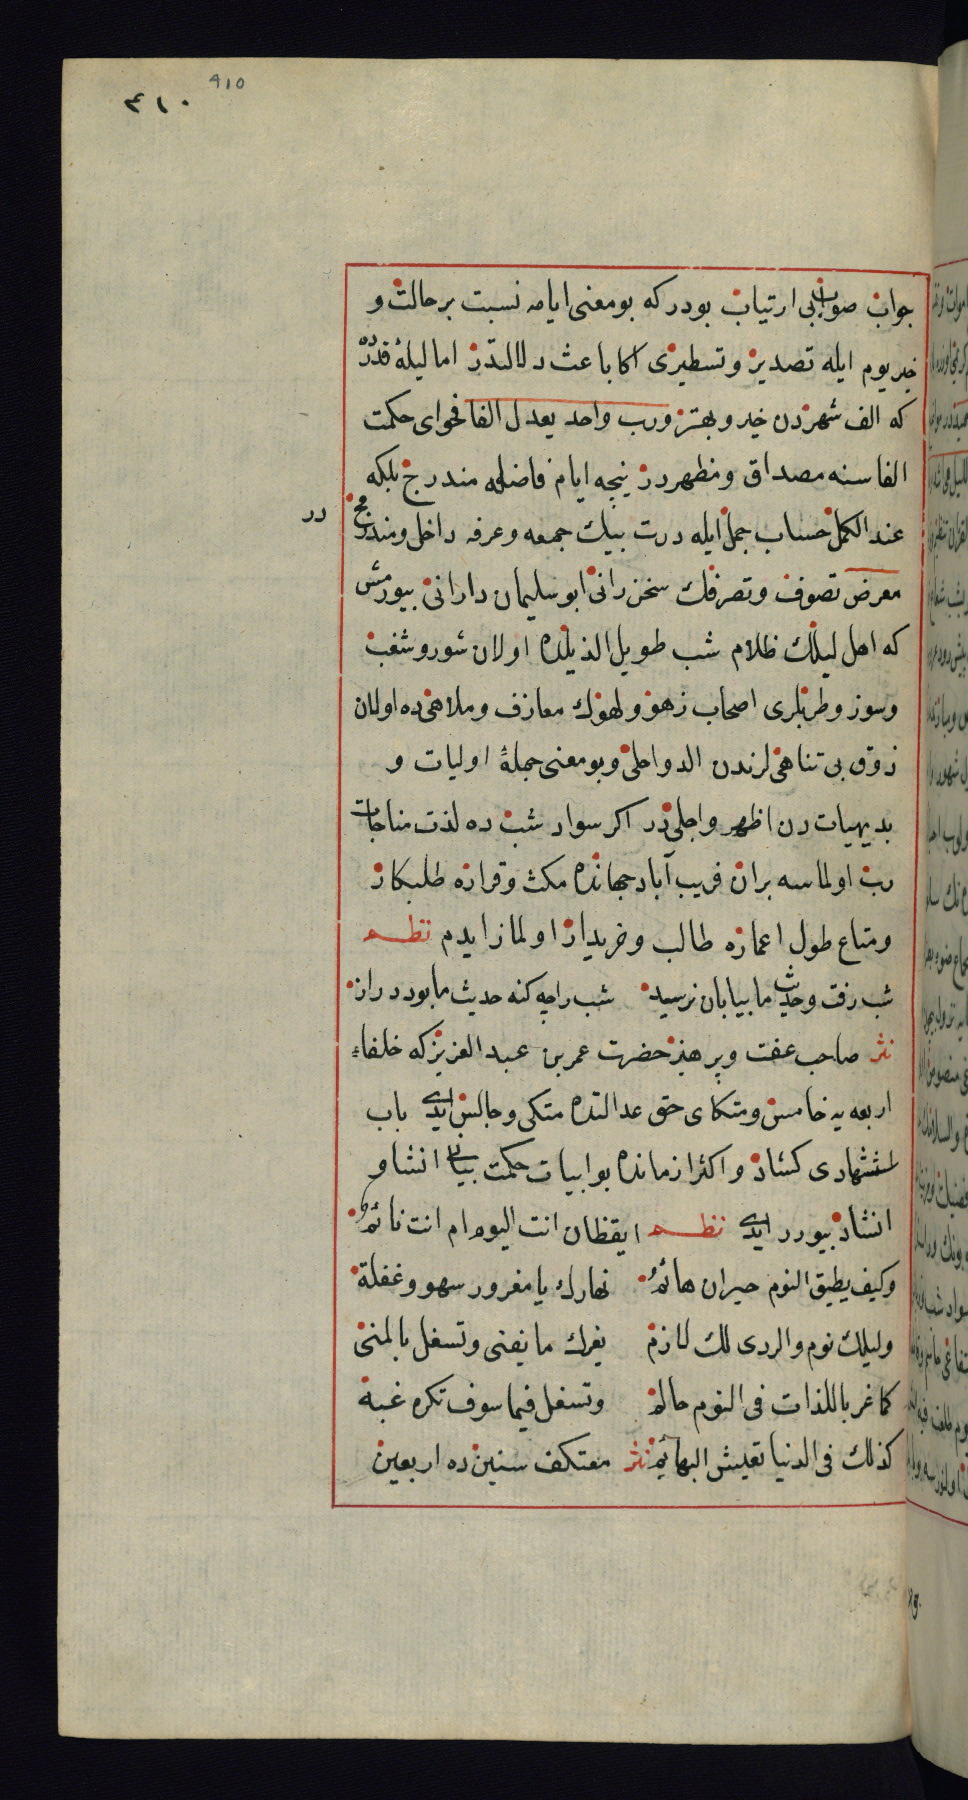 410
٤١٠
جواب صواب بی ارتیاب بودر که بو معنی ایامه نسبت بر حالت و
خیر یوم ایله تصدیر و تسطیری اکا باعث دلالتدر اما لیلهٔ قدرده
که الف شهردن خیر و بهتر ورب واحد یعدل الفا فحوای حکمت
الفا سنه مصداق ومظهردر نیجه ایام فاضله مندرج بلکه
عند الکمل حساب جمل ایله درت بیك جمعه وعرفه داخل ومندمج
در
معرض تصوف وتصرفك سخن رانی ابو سلیمان دارانی بیورمش
که اهل لیلك ظلام شب طویل الذیلده اولان شور و شغب
وسوز وطربلری اصحاب زهو ولهوك معازف وملاهی ده اولان
ذوق بی تناهی لرندن الد واحلی وبو معنی جملهٔ اولیات و
بدیهیات دن اظهر واجلی در اکر سواد شب ده لذت مناجات
رب اولماسه بران فریب آباد جهانده مکث وقراره طلبکار
ومتاع طول اعماره طالب وخریدار اولمازایدم نظم
شب رفت وحدیث ما بپایان نرسید شب راچه کنه حدیث ما بود دراز
نثر صاحب عفت وپرهیز حضرت عمر بن عبد العزیز که خلفاء
اربعه یه خامس ومتکای حق عدالتده متکی وجالس ایدی باب
استشهادی کشاد واکثر ازمانده بو ابیات حکمت بیاتی انشا و
انشاد بیورر ایدی نظم ایقظان انت الیوم ام انت نائم
وکیف یطیق النوم حیران هائم نهارك یا مغرور سهو وغفلة
ولیلك نوم والردی لك لازم یغرك ما یفنی وتسغل بالمنی
کما غر باللذات فی النوم حالم وتسغل فیما سوف تکره غبه
کذلك فی الدنیا تعیش البهائم نثر معتکف سنین ده اربعین